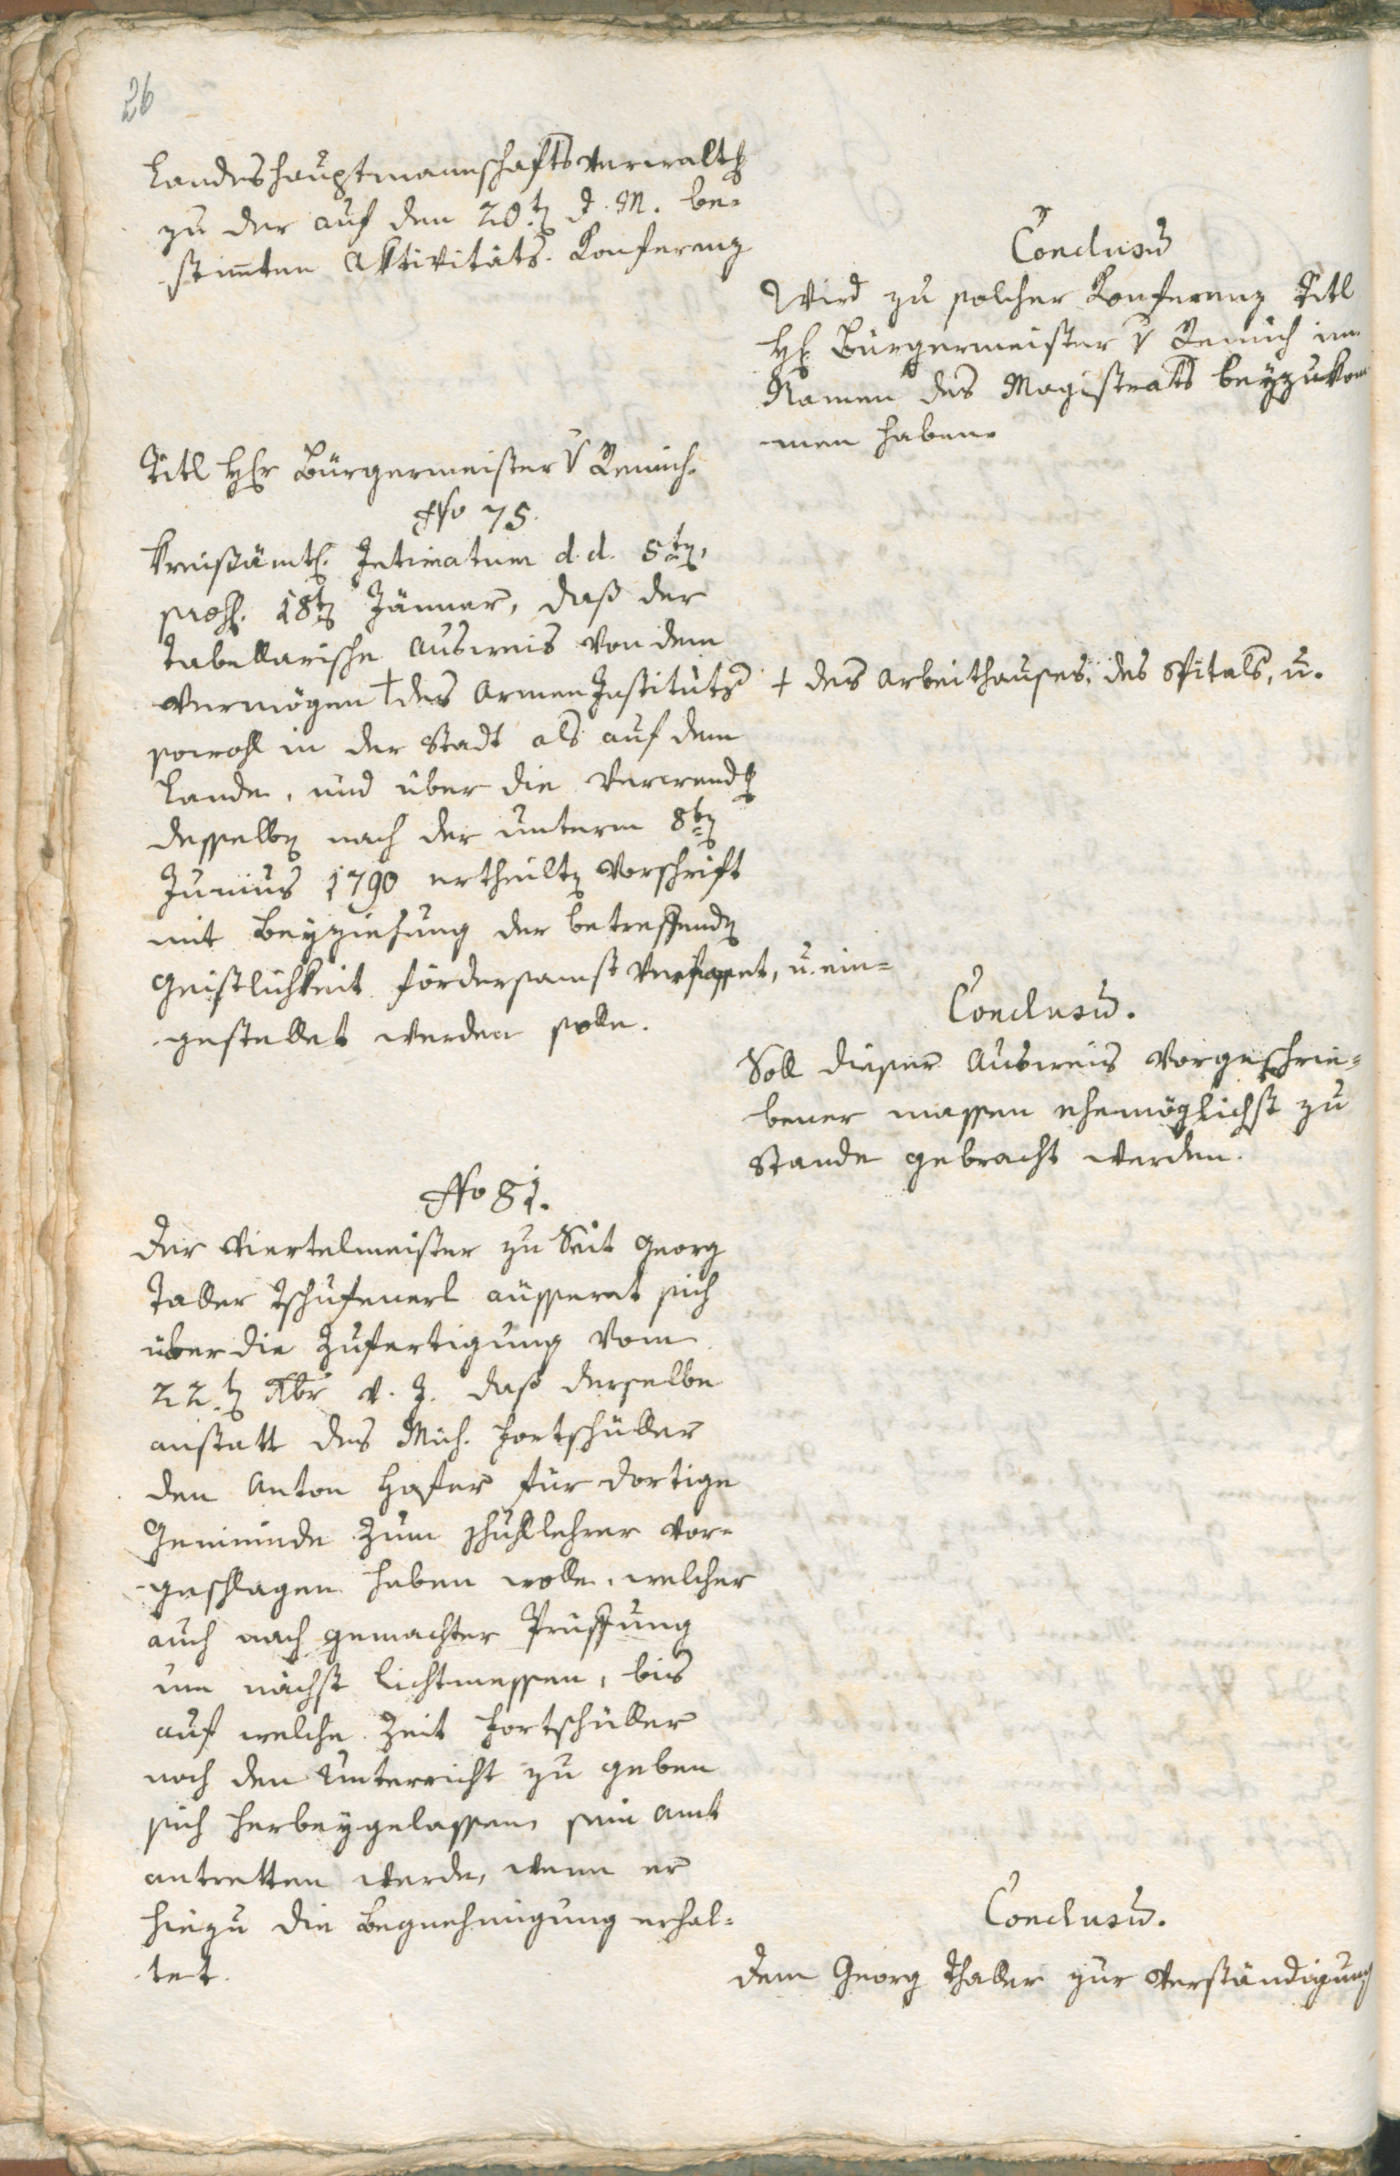 26
Landeshauptmannschaftsverwaltg
zu der auf den 20tn d. M. be-
stimten Aktivitäts-Konferenz
Conclusu
Wird zu solcher Konferenz Titl
H: Bürgermeister v Remich im
Namen des Magistrats beyzukom
men haben.
Titl Hr Bürgermeister v Remich.
No 75.
Kreisämtl. Intimatum d. d. 5tn,
18tn Jänner, daß der
tabellarische Ausweis von dem
Vermögen + des Armen Instituts
+ des Arbeithauses, des Spitals, u.
sowohl in der Stadt als auf dem
Lande, und über die Verwendg
desselbn nach der unterm 8tn
Junius 1790 ertheiltn Vorschrift
mit Beyziehung der betreffendn
Geistlichkeit fördersamst verfasset, u. ein=
gestellet werden solle.
Conclusu.
Soll dieser Ausweis vorgeschrie=
bener massen ehemöglichst zu
Stande gebracht werden.
No 81.
Der Viertelmeister zu Seit Georg
Taller Tschufenerl äusseret sich
über die Zufertigung vom
22.tn Xbr v. J. daß derselbe
anstatt des Mich. Fortschüller
den Anton Hofer für dortige
Gemeinde zum Schullehrer vor-
geschlagen haben wolle, welcher
auch nach gemachter Prüffung
um nächst Lichtmessen, bis
auf welche Zeit Fortschüller
noch den Unterricht zu geben
sich herbeygelassen, sein Amt
antretten werde, wenn er
hiezu die Begnehmigung erhal=
tet.
Conclusu.
Dem Georg Thaller zur Verständigung